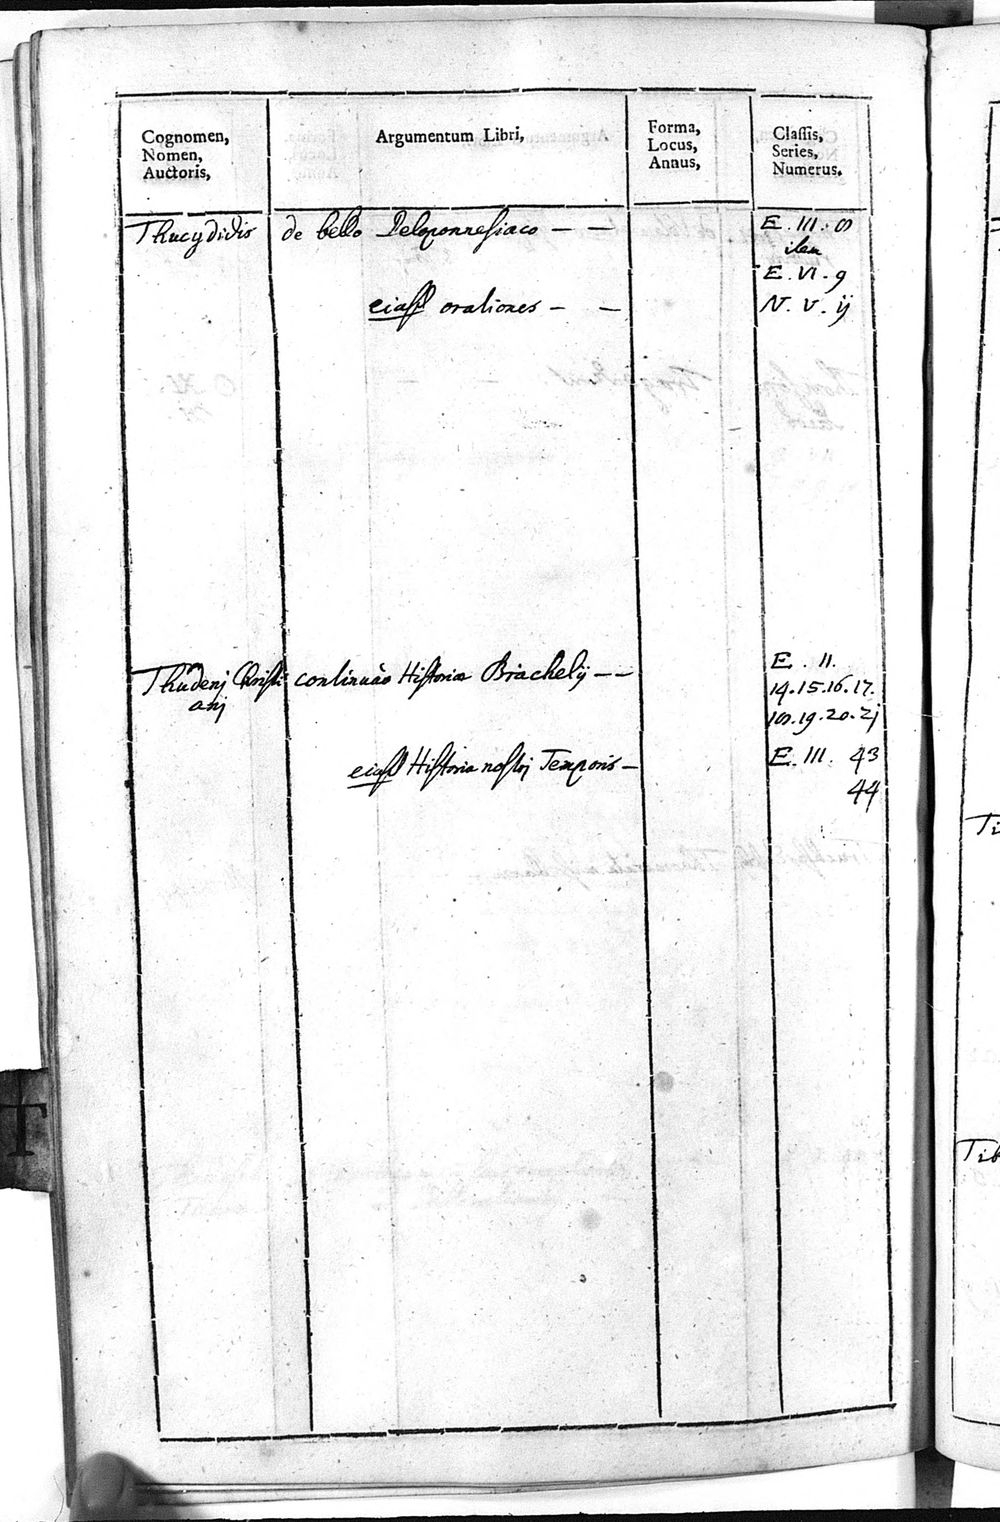 Cognomen,
Nomen,
Auctoris,
Argumentum Libri,
Forma,
Locus,
Annus,
Classis,
Series,
Numerus.
Thucydidis de bello Peloponnesiaco — — E. III. 8
item
E. VI. 9
eiusd orationes — — N. V. ij
Thudenj Christi continuão Historiæ Brachelij — — E. II.
anj 14. 15. 16. 17.
18. 19. 20. 2j
eiusd Historia nostrj Temporis — E. III. 43
44
T